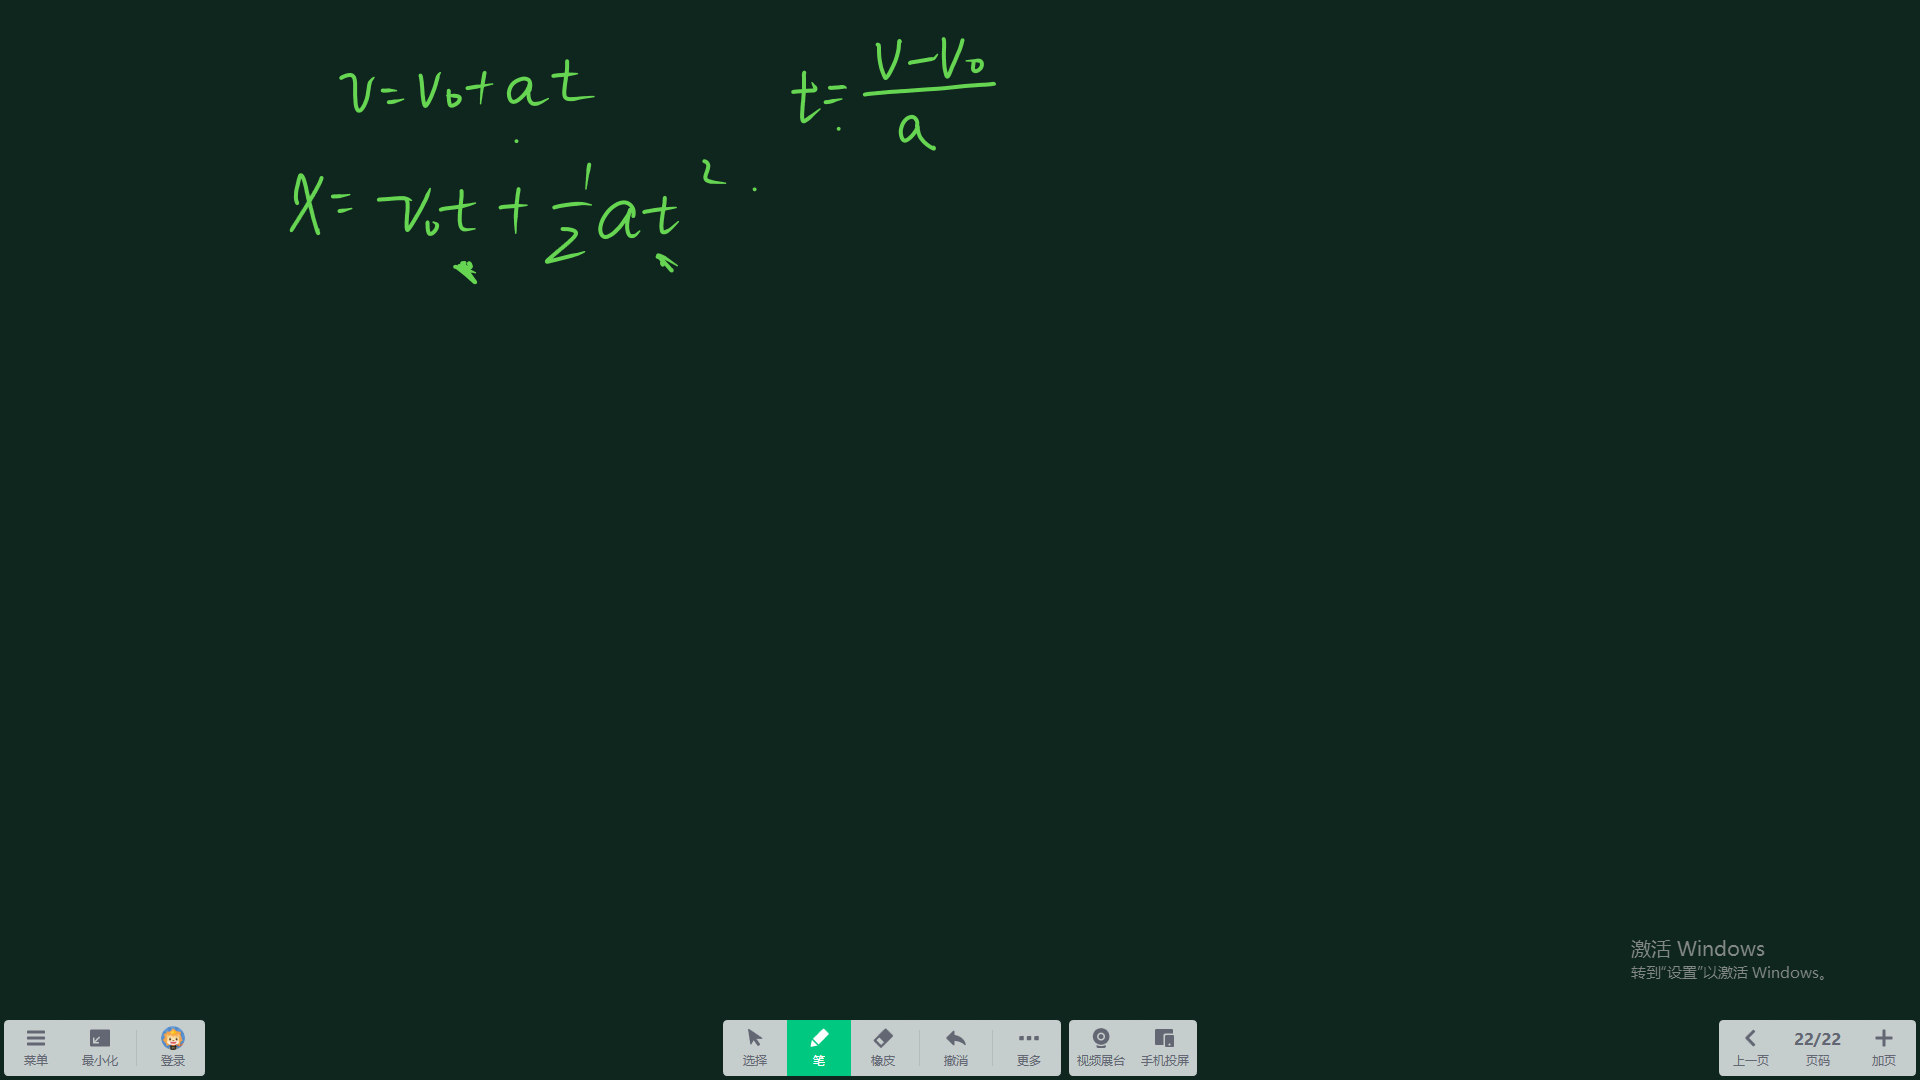 v=v₀+at
t=(v-v₀)/a
x=v₀t+½at²
激活 Windows
转到“设置”以激活 Windows。
菜单 最小化 登录 选择 笔 橡皮 撤消 更多 视频展台 手机投屏 上一页 22/22 页码 加页